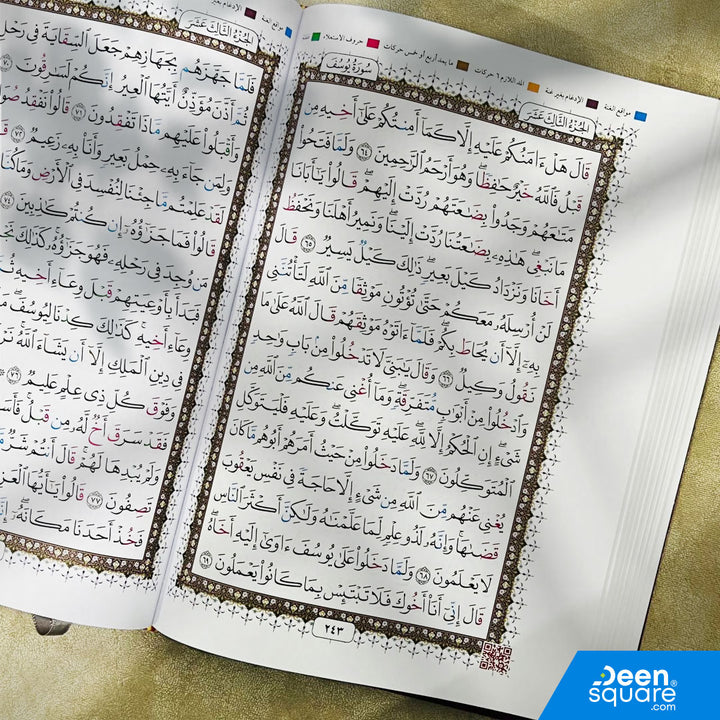 مواقع الغنة
الإدغام بغير غنة
المد اللازم ٦ حركات
ما يمد أربع أو خمس حركات
حروف الاستعلاء
الجُزءُ الثَّالِثَ عَشَرَ
سُورَةُ يُوسُفَ
قَالَ هَلْ ءَامَنُكُمْ عَلَيْهِ إِلَّا كَمَآ أَمِنتُكُمْ عَلَىٰٓ أَخِيهِ مِن
قَبْلُ فَٱللَّهُ خَيْرٌ حَٰفِظًا وَهُوَ أَرْحَمُ ٱلرَّٰحِمِينَ ٦٤ وَلَمَّا فَتَحُوا۟
مَتَٰعَهُمْ وَجَدُوا۟ بِضَٰعَتَهُمْ رُدَّتْ إِلَيْهِمْ قَالُوا۟ يَٰٓأَبَانَا
مَا نَبْغِى هَٰذِهِۦ بِضَٰعَتُنَا رُدَّتْ إِلَيْنَا وَنَمِيرُ أَهْلَنَا وَنَحْفَظُ
أَخَانَا وَنَزْدَادُ كَيْلَ بَعِيرٍ ذَٰلِكَ كَيْلٌ يَسِيرٌ ٦٥ قَالَ
لَنْ أُرْسِلَهُۥ مَعَكُمْ حَتَّىٰ تُؤْتُونِ مَوْثِقًا مِّنَ ٱللَّهِ لَتَأْتُنَّنِى
بِهِۦٓ إِلَّآ أَن يُحَاطَ بِكُمْ فَلَمَّآ ءَاتَوْهُ مَوْثِقَهُمْ قَالَ ٱللَّهُ عَلَىٰ مَا
نَقُولُ وَكِيلٌ ٦٦ وَقَالَ يَٰبَنِىَّ لَا تَدْخُلُوا۟ مِنۢ بَابٍ وَٰحِدٍ
وَٱدْخُلُوا۟ مِنْ أَبْوَٰبٍ مُّتَفَرِّقَةٍ وَمَآ أُغْنِى عَنكُم مِّنَ ٱللَّهِ مِن
شَىْءٍ إِنِ ٱلْحُكْمُ إِلَّا لِلَّهِ عَلَيْهِ تَوَكَّلْتُ وَعَلَيْهِ فَلْيَتَوَكَّلِ
ٱلْمُتَوَكِّلُونَ ٦٧ وَلَمَّا دَخَلُوا۟ مِنْ حَيْثُ أَمَرَهُمْ أَبُوهُم مَّا كَانَ
يُغْنِى عَنْهُم مِّنَ ٱللَّهِ مِن شَىْءٍ إِلَّا حَاجَةً فِى نَفْسِ يَعْقُوبَ
قَضَىٰهَا وَإِنَّهُۥ لَذُو عِلْمٍ لِّمَا عَلَّمْنَٰهُ وَلَٰكِنَّ أَكْثَرَ ٱلنَّاسِ
لَا يَعْلَمُونَ ٦٨ وَلَمَّا دَخَلُوا۟ عَلَىٰ يُوسُفَ ءَاوَىٰٓ إِلَيْهِ أَخَاهُ
قَالَ إِنِّىٓ أَنَا۠ أَخُوكَ فَلَا تَبْتَئِسْ بِمَا كَانُوا۟ يَعْمَلُونَ ٦٩
٢٤٣
مواقع الغنة
الإدغام بغير
الجُزءُ الثَّالِثَ عَشَرَ
فَلَمَّا جَهَّزَهُم بِجَهَازِهِمْ جَعَلَ ٱلسِّقَايَةَ فِى رَحْلِ
ثُمَّ أَذَّنَ مُؤَذِّنٌ أَيَّتُهَا ٱلْعِيرُ إِنَّكُمْ لَسَٰرِقُونَ ٧٠
وَأَقْبَلُوا۟ عَلَيْهِم مَّاذَا تَفْقِدُونَ ٧١ قَالُوا۟ نَفْقِدُ
وَلِمَن جَآءَ بِهِۦ حِمْلُ بَعِيرٍ وَأَنَا۠ بِهِۦ زَعِيمٌ ٧٢
لَقَدْ عَلِمْتُم مَّا جِئْنَا لِنُفْسِدَ فِى ٱلْأَرْضِ وَمَا كُنَّا
قَالُوا۟ فَمَا جَزَٰٓؤُهُۥٓ إِن كُنتُمْ كَٰذِبِينَ ٧٤
مَن وُجِدَ فِى رَحْلِهِۦ فَهُوَ جَزَٰٓؤُهُۥ كَذَٰلِكَ
فَبَدَأَ بِأَوْعِيَتِهِمْ قَبْلَ وِعَآءِ أَخِيهِ
وِعَآءِ أَخِيهِ كَذَٰلِكَ كِدْنَا لِيُوسُفَ
فِى دِينِ ٱلْمَلِكِ إِلَّآ أَن يَشَآءَ ٱللَّهُ
وَفَوْقَ كُلِّ ذِى عِلْمٍ عَلِيمٌ ٧٦
فَقَدْ سَرَقَ أَخٌ لَّهُۥ مِن قَبْلُ
وَلَمْ يُبْدِهَا لَهُمْ قَالَ أَنتُمْ شَرٌّ
تَصِفُونَ ٧٧ قَالُوا۟ يَٰٓأَيُّهَا
فَخُذْ أَحَدَنَا مَكَانَهُۥٓ
Deen
square®
.com